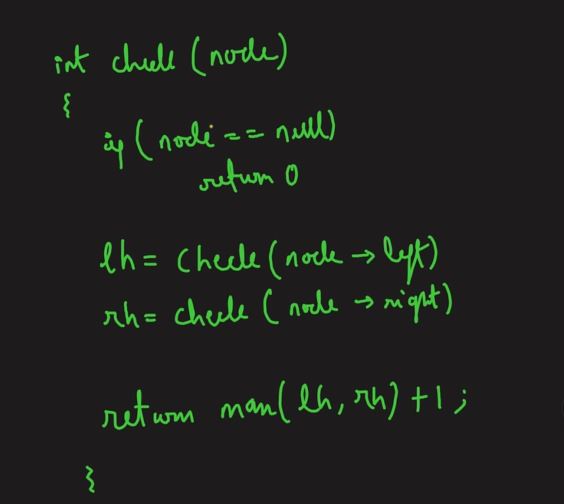 int check (node)
{
if (node == null)
return 0
lh = check (node → left)
rh = check (node → right)
return max (lh, rh) + 1 ;
}